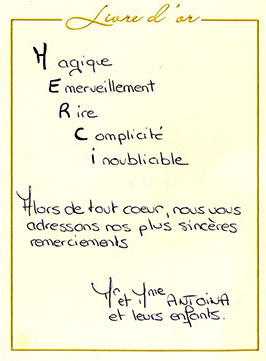 Livre d'or
Magique
Emerveillement
Rire
Complicité
Inoubliable
Alors de tout coeur, nous vous
adressons nos plus sincères
remerciements
Mr et Mme ANTOINA
et leurs enfants.